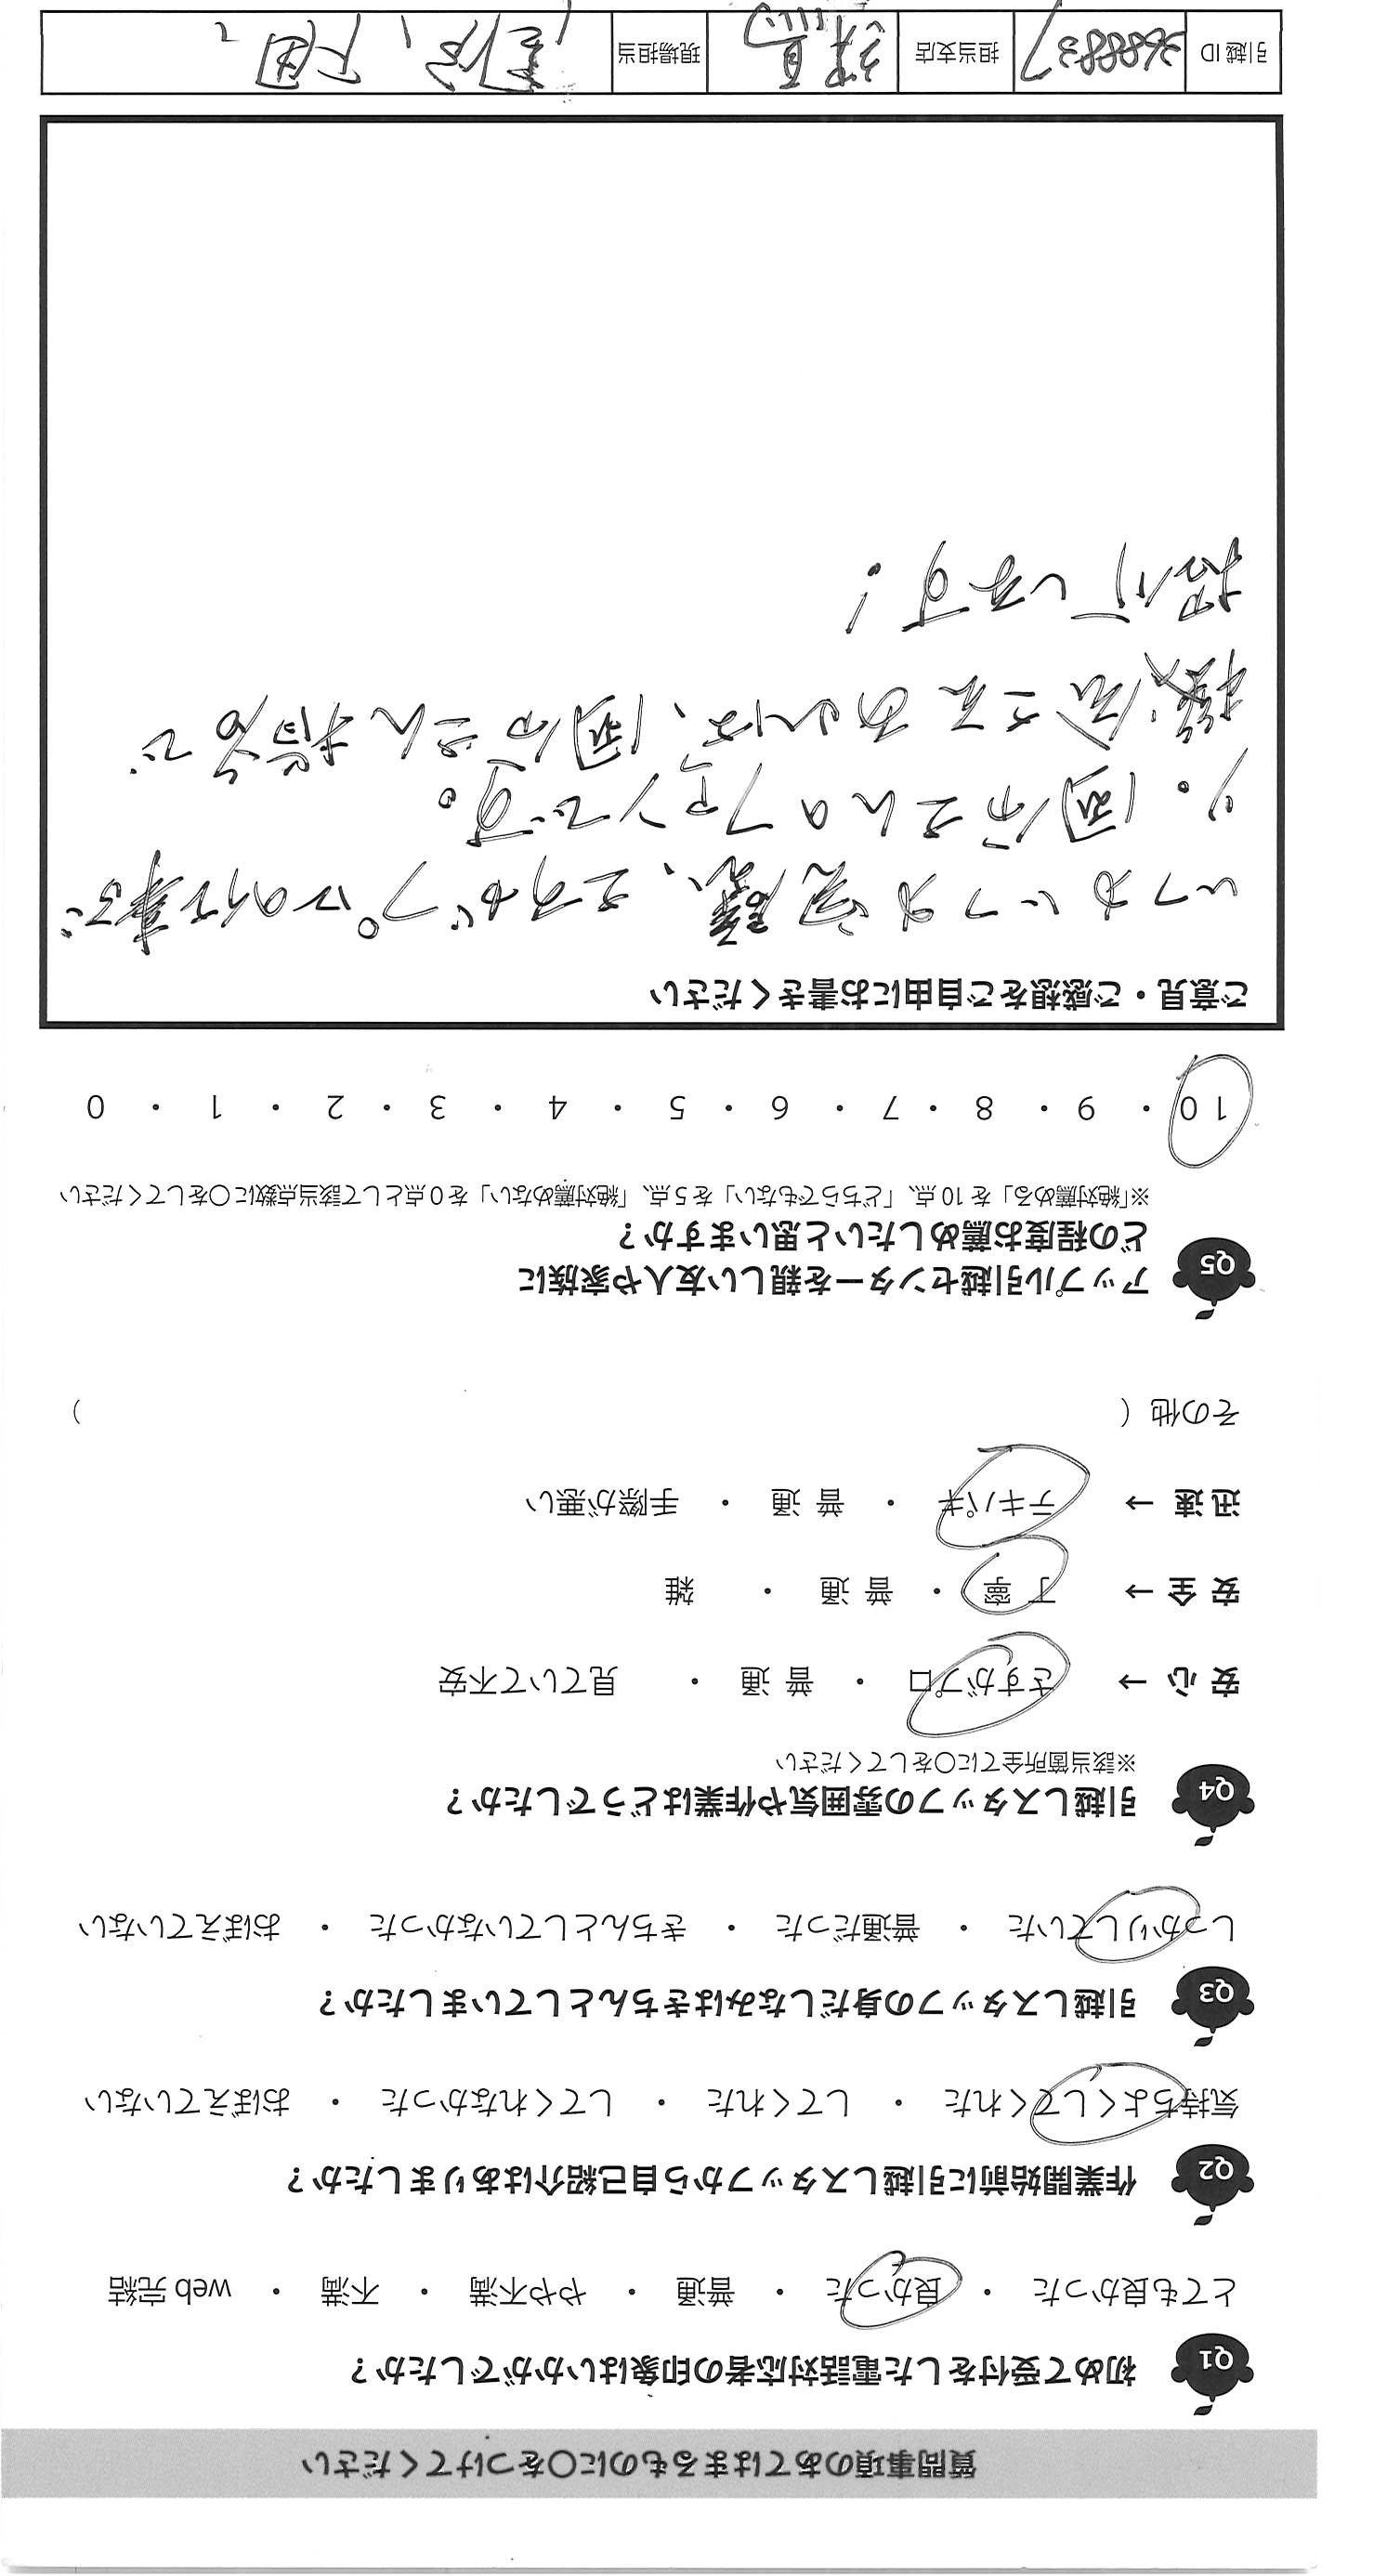 質問事項のあてはまるものに○をつけてください
Q1 初めて受付をした電話対応者の印象はいかがでしたか？
とても良かった ・ 良かった ・ 普通 ・ やや不満 ・ 不満 ・ web 完結
Q2 作業開始前に引越しスタッフから自己紹介はありましたか？
気持ちよくしてくれた ・ してくれた ・ してくれなかった ・ おぼえていない
Q3 引越しスタッフの身だしなみはきちんとしていましたか？
しっかりしていた ・ 普通だった ・ きちんとしていなかった ・ おぼえていない
Q4 引越しスタッフの雰囲気や作業はどうでしたか？
※該当箇所全てに○をしてください
安 心 → さすがプロ ・ 普 通 ・ 見ていて不安
安 全 → 丁 寧 ・ 普 通 ・ 雑
迅 速 → テキパキ ・ 普 通 ・ 手際が悪い
その他（ ）
Q5 アップル引越センターを親しい友人や家族に
どの程度お薦めしたいと思いますか？
※「絶対薦める」を 10 点、「どちらでもない」を 5 点、「絶対薦めない」を 0 点として該当点数に○をしてください
10 ・ 9 ・ 8 ・ 7 ・ 6 ・ 5 ・ 4 ・ 3 ・ 2 ・ 1 ・ 0
ご意見・ご感想をご自由にお書きください
いつもいつも完璧、さすがプロの仕事ぶ
り。国分さんのファンです。
機会さえあれば、国分さん指名で
拡げします！
引越 ID 3688837 担当支店 練馬 現場担当